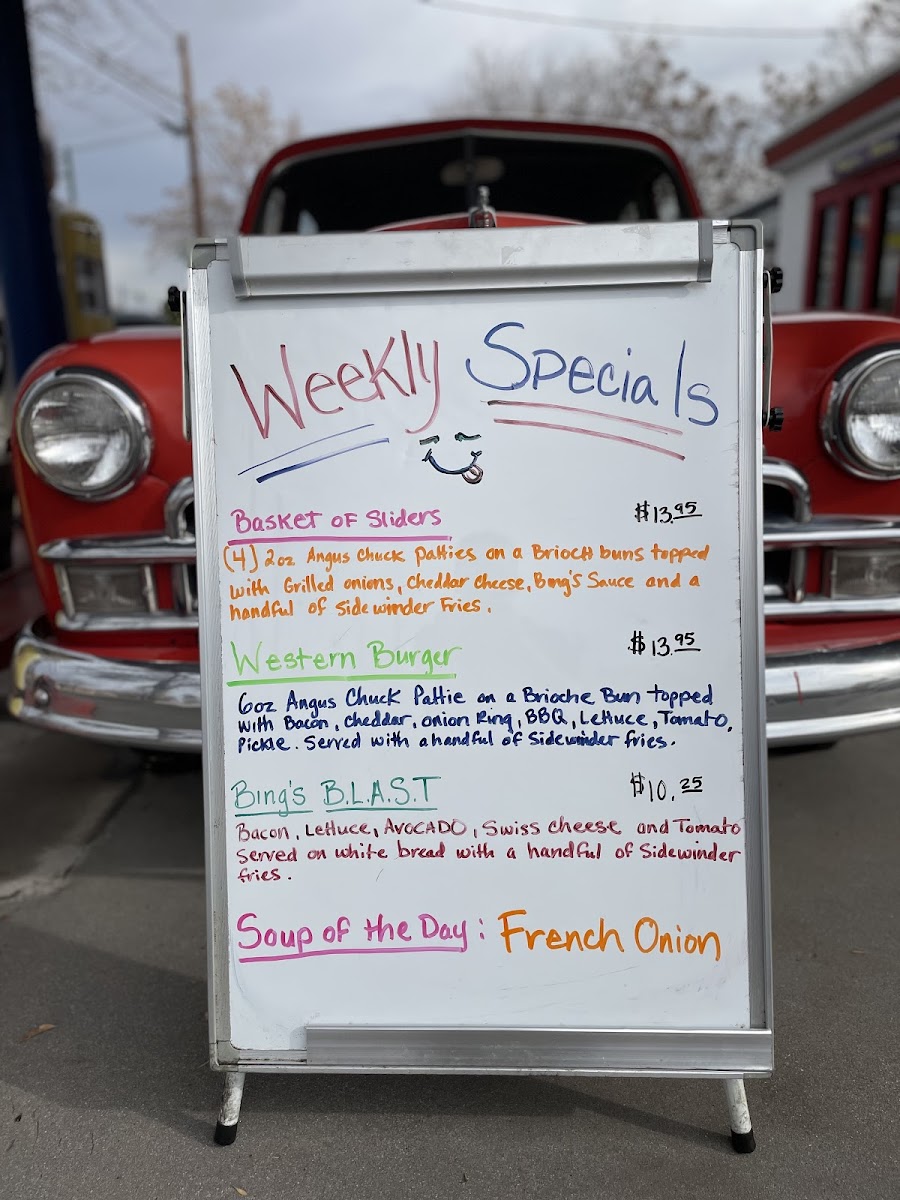 Weekly Specials
Basket of Sliders $13.95
(4) 2oz Angus Chuck Patties on a Brioch buns topped
with Grilled onions, cheddar cheese, Bing's Sauce and a
handful of Sidewinder Fries.
Western Burger $13.95
6oz Angus Chuck Pattie on a Brioche Bun topped
with Bacon, cheddar, onion Ring, BBQ, Lettuce, Tomato,
Pickle. Served with a handful of Sidewinder fries.
Bing's B.L.A.S.T $10.25
Bacon, Lettuce, AVOCADO, Swiss cheese and Tomato
Served on white bread with a handful of Sidewinder
fries.
Soup of the Day: French Onion